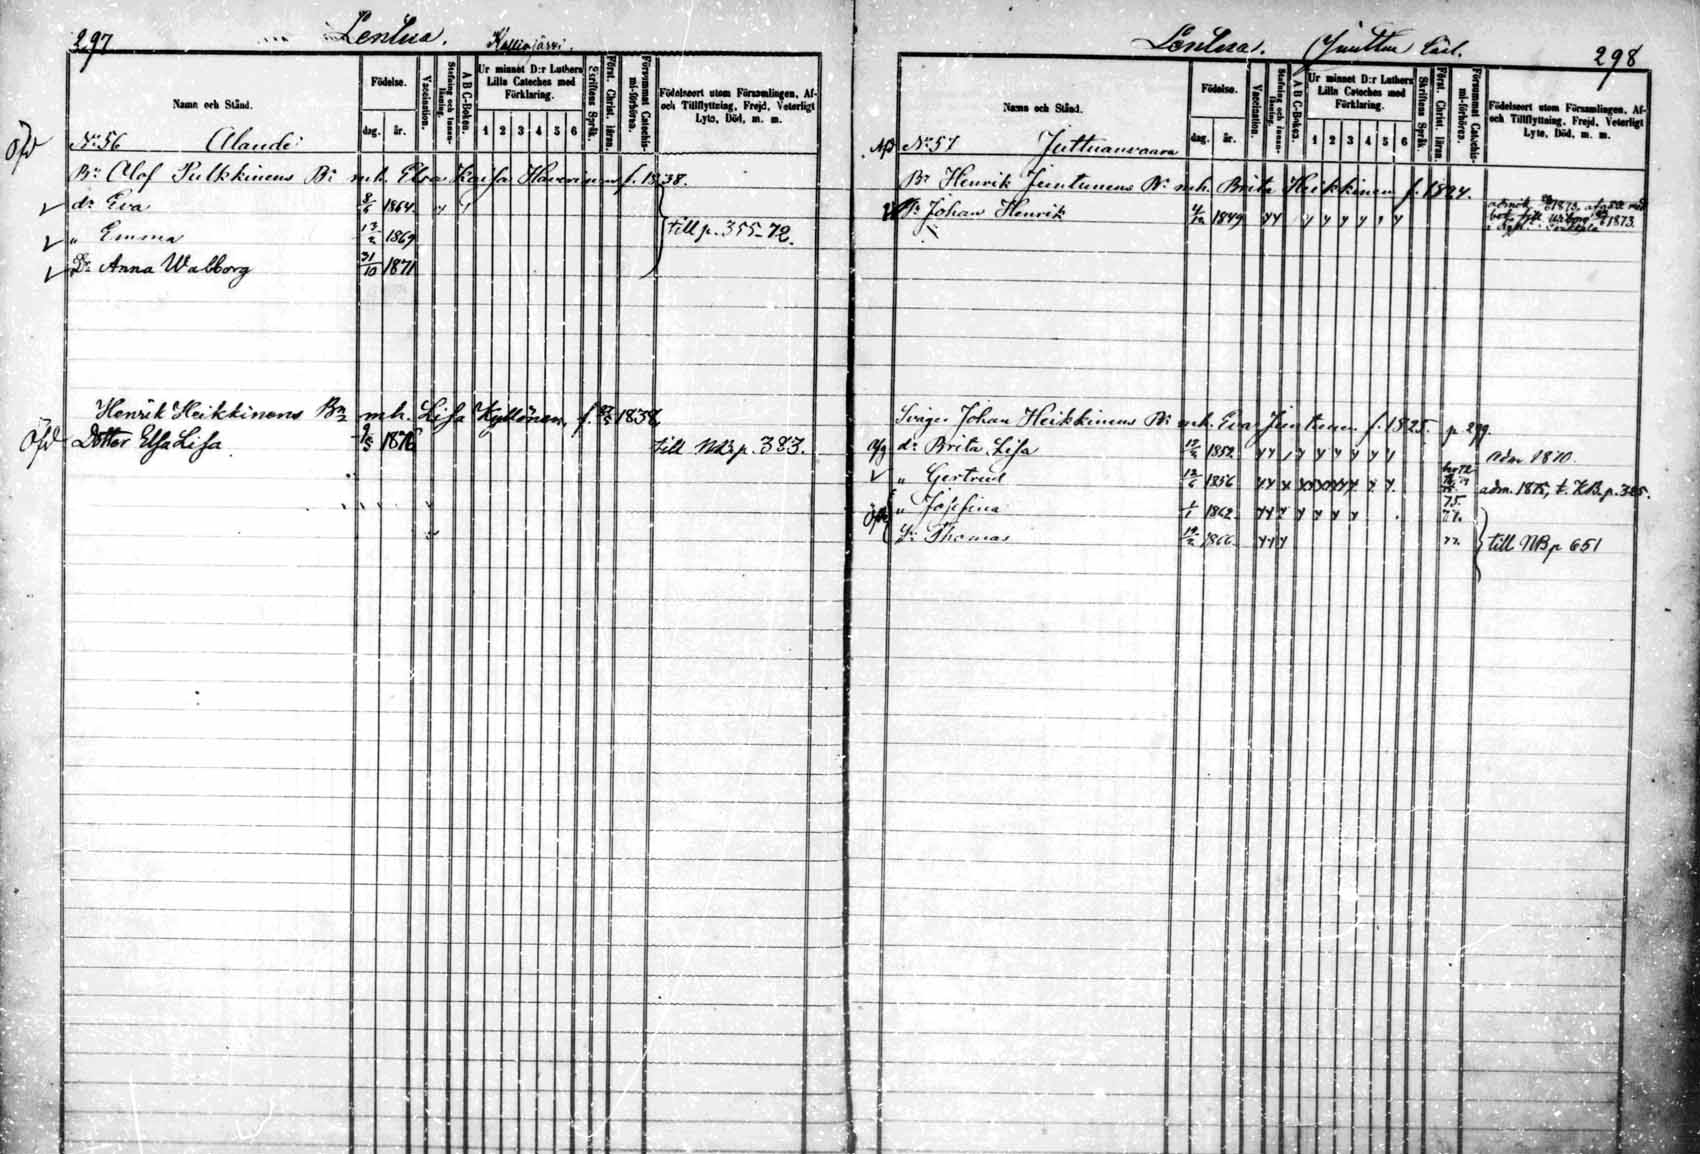 297
Lentua.
Kalliojärvi.
Namn och Stånd.
Födelse.
dag.
år.
Vaccination.
Stafning och Innanläsning.
A B C-Boken.
Ur minnet D:r Luthers Lilla Cateches med Förklaring.
1 2 3 4 5 6
Skriftens Språk.
Först. Christ. läran.
Försummat Catechismi-förhören.
Födelseort utom Församlingen, Af- och Tillflyttning, Frejd, Veterligt Lyte, Död, m. m.
N:o 56 Alande
Bn Olof Pulkkinens Bn m.h. Elsa Kaisa Haverinen f. 1838.
dr Eva 1864
" Emma 1869 till p. 355-72.
Dr Anna Walborg 31/10 1871
Henrik Heikkinens Bn m.h. Lisa Kyllönen, f. 1838,
Dotter Elsa Lisa. 1876 till NB p. 383.
Lentua.
298
Namn och Stånd.
Födelse.
dag.
år.
Vaccination.
Stafning och Innanläsning.
A B C-Boken.
Ur minnet D:r Luthers Lilla Cateches med Förklaring.
1 2 3 4 5 6
Skriftens Språk.
Först. Christ. läran.
Försummat Catechismi-förhören.
Födelseort utom Församlingen, Af- och Tillflyttning, Frejd, Veterligt Lyte, Död, m. m.
N:o 57 Juttuanvaara
Bn Henrik Juntunens Bn m.h. Brita Heikkinen f. 1824.
Johan Henrik 1849 1873
1873.
Svåger Johan Heikkinens Bn m.h. Eva Juntunen f. 1825. p. 299.
dr Brita Lisa 1852 adm 1870.
" Gertrud 1856 adm. 1875, t. KB. p. 385.
" Josefina 1/1 1862 77.
Sn Thomas 1866 till NB p 651